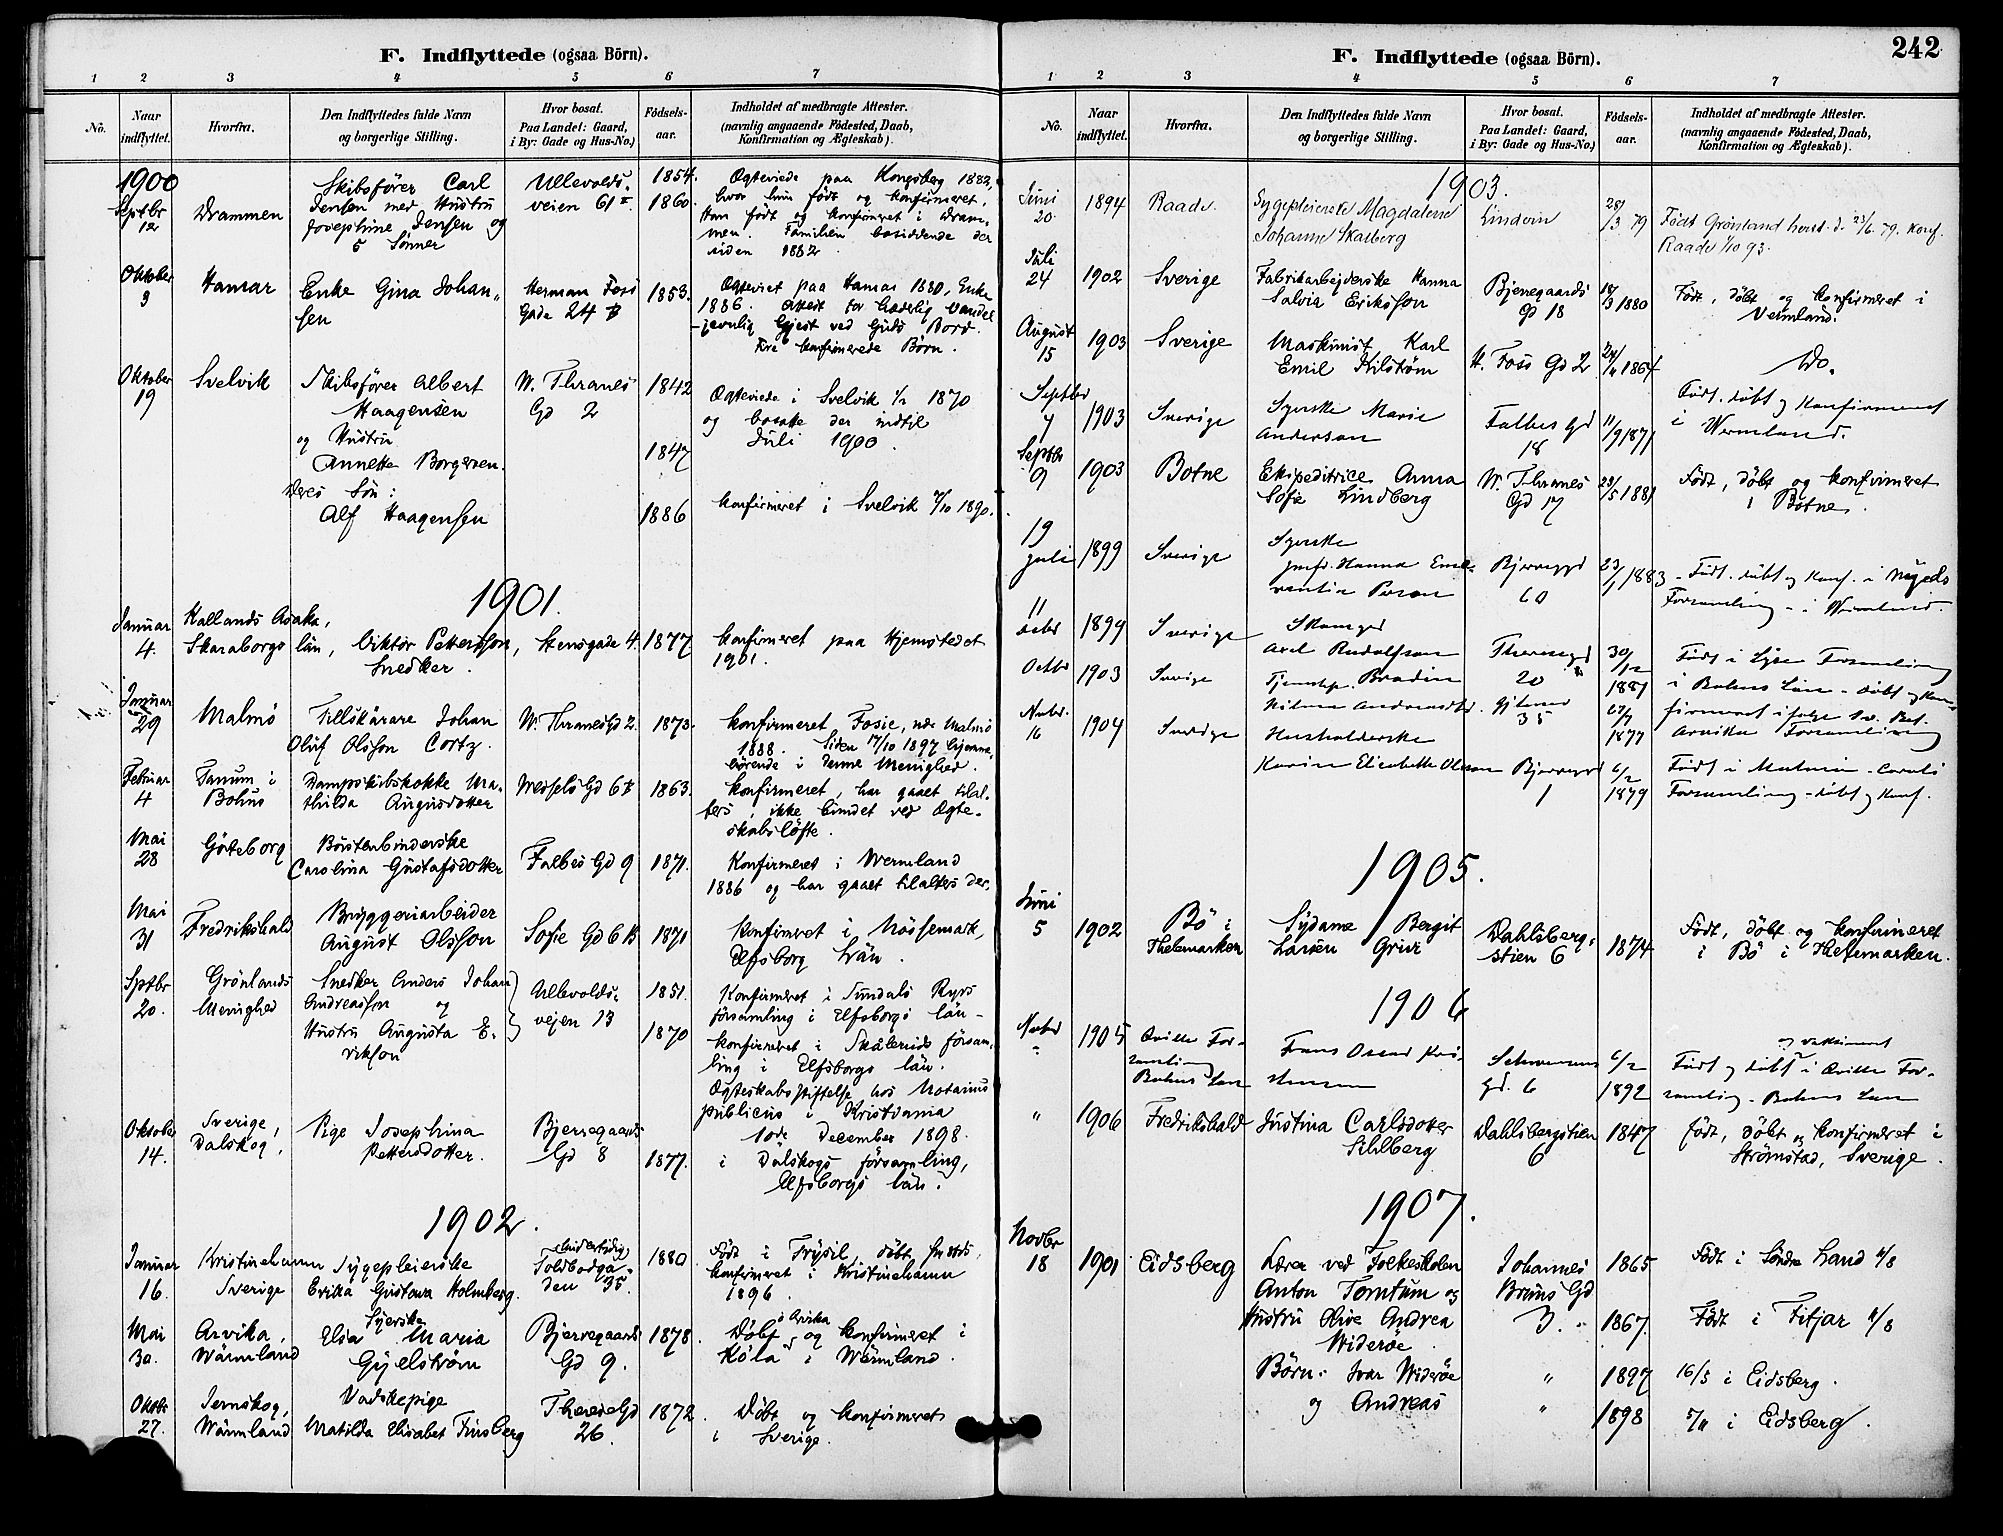 F. Indflyttede (ogsaa Börn).
1 2 3 4 5 6 7
No.
Naar indflyttet.
Hvorfra.
Den Indflyttedes fulde Navn
og borgerlige Stilling.
Hvor bosat.
Paa Landet: Gaard,
i By: Gade og Hus-No.)
Födsels-
aar.
Indholdet af medbragte Attester.
(navnlig angaaende Födested, Daab,
Konfirmation og Ægteskab).
1900
Septbr 12 Drammen
Skibsfører Carl
Jensen med Hustru
Josephine Jensen og
5 Sønner
Ullevolds-
veien 61
1854.
1860.
Ægteviede paa Kongsberg 1882,
hvor hun født og konfirmeret,
Han født og konfirmeret i Dram-
men. Familien bosiddende der
siden 1882
Oktober 9 Hamar
Enke Gina Johan-
sen
Herman Foss
Gade 24
1853.
Ægteviet paa Hamar 1880, Enke
1886. Attest for hæderlig Vandel
jevnlig Gjest ved Guds Bord.
Fire konfirmerede Børn.
Oktober 19 Svelvik
Skibsfører Albert
Haagensen
og Hustru
Annette Borgersen.
Deres Søn:
Alf Haagensen
W. Thranes
Gd 2
1842
1847
1886
Ægteviede i Svelvik 1870
og bosatte der indtil
Juli 1900.
konfirmeret i Svelvik 1890.
1901.
Januar 4.
Hallands Asaka,
Skaraborgs län, Viktor Pettersson,
Snedker.
Stensgade 4. 1877
konfirmeret paa Hjemstedet
1901.
Januar 29 Malmö
Tillskärare Johan
Oluf Olsson Cortz.
W. ThranesGd 2. 1873.
konfirmeret Fosie, nær Malmö
1888. Siden 17/10 1897 hjemme-
hörende i denne Menighed.
Februar 4
Tanum i
Bohus
Dampskibskokke Ma-
thilda Augusdotter
Wessels Gd 6 1863.
konfirmeret, har gaaet tilal-
ters, ikke bundet ved Ægte-
skabsløfte.
Mai 28 Göteborg
Börstenbinderske
Carolina Gustafsdotter
Falbes Gd 9 1871.
Konfirmeret i Wermland
1886 og har gaaet tilalters der.
Mai 31 Fredrikshald
Bryggeriarbeider
August Olsson
Sofie Gd 6 B 1871
Konfimeret i Nössemark,
Elfsborg Län.
Sptbr 20.
Grönlands
Menighed
Snedker Anders Johan
Andreasson og
Hustru Augusta E-
rikson
Ullevolds-
vejen 13
1851.
1870
Konfirmeret i Sundals Ryrs
församling i Elfsborgs län -
konfirmeret i Skållerud försam-
ling i Elfsborgs län.
Ægteskabsstiftelse hos Notarius
publicus i Kristiania
10de December 1898.
Oktober 14.
Sverige,
Dalskog,
Pige Josephina
Pettersdotter.
Bjerregaards
Gd 8
1877.
i Dalskogs församling,
Elfsborgs län.
1902.
Januar 16.
Kristinehamn
Sverige
Sygepleierske
Erika Gustava Holmberg.
midlertidig
Toldbodga-
den 35.
1880
Født i Trysil, døbt
konfirmeret i Kristinehamn
1896.
Mai 30.
Arvika,
Wärmland
Syerske
Elsa Maria
Gyelström
Bjerregaards
Gd 9.
1878.
Döbt i Arvika og konfirmeret i
Köla i Wärmland.
Oktbr 27.
Jernskog,
Wärmland
Vadskepige
Matilda Elisabet Finsberg
ThereseGd
26.
1872.
Døbt og konfirmeret
i Sverige.
F. Indflyttede (ogsaa Börn).
242
1 2 3 4 5 6 7
No.
Naar
indflyttet.
Hvorfra.
Den Indflyttedes fulde Navn
og borgerlige Stilling.
Hvor bosat.
Paa Landet: Gaard,
i By: Gade og Hus-No.)
Födsels-
aar.
Indholdet af medbragte Attester.
(navnlig angaaende Födested, Daab,
Konfirmation og Ægteskab).
1903.
Juni 20 1894 Raade.
Sygepleierske Magdalene
Johanne Skalberg
Lindern 28/3 79
Født Grönland 79. konf.
Raade 1/10 93.
Juli 24 1902 Sverige
Fabrikarbejderske Hanna
Salvia Eriksson
Bjerregaards
Gd 18
1880
Født, døbt og konfirmeret i
Vermland.
August 15 1903 Sverige
Maskinist Karl
Emil Kilström
H. Foss Gd 2 1867
Do.
Septbr 4 1903 Sverige
Syerske Marie
Anderson
Falbes Gd
18
11/9 1871
Født, døbt og Konfirmeret
i Wermland.
Septbr 9 1903 Botne
Ekspeditrice Anna
Sofie Lindberg
W. Thranes
Gd 17
23/5 1881
Født, døbt og konfirmeret
i Botne.
19 Juli 1899 Sverige
Syerske
Hanna Eme-
rentia
Bjerregd
60
23/1 1883
Født, døbt og konf. i Nyeds
Forsamling - i Wermland.
11 Octbr 1899 Sverige
Axel Rudolfson
Brodin
Theresegd
20
30/12
1881
Født i Lyse Forsamling
i Bohus Län - døbt og kon-
firmeret ifølge
Octbr 1903 Sverige
Hilma
35
1877
Arvika Forsamling
Novbr. 16 1904 Sverige
Husholderske
Karin Elisabeth Olsson
Bjerregd
1
6/2
1879
Født i Malmö - Caroli
Forsamling - døbt og konf.
1905.
Juni 5 1902
Bö i
Thelemarken
Sydame Bergit
Larsen Grive
Dahlsberg-
stien 6
1874
Født, döbt og konfirmeret
i Bö i Thelemarken.
1906
Novbr 1905
Qville For-
samling
Bohus Len
Frans Oscar Kri-
stensen
Schwensens
gd. 6
6/2
1892
og vaksineret
Født og døbt i Qville For-
samling - Bohus Len
" 1906 Fredrikshald
Justina Carlsdotter
Sihlberg
Dahlsbergstien
6
1847
født, döbt og konfirmeret i
Strömstad, Sverige.
1907.
Novbr 18 1901 Eidsberg
Lærer ved Folkeskolen
Anton Tomtum og
Hustru Olive Andrea
Widerøe
Børn: Ivar Widerøe
og Andreas
Johannes
Bruns Gd
3.
"
"
1865
1867.
1897
1898
Født i Søndre Land 11/8
Født i Fitjar 11/8
16/5 i Eidsberg.
5/11 i Eidsberg.